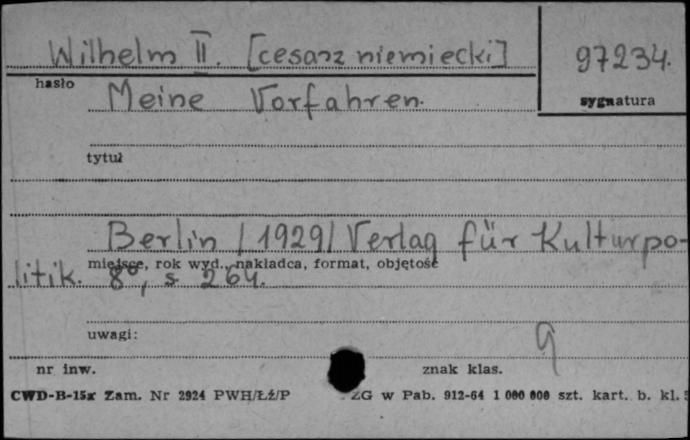 Wilhelm II. [cesarz niemiecki]
97234.
hasło
sygnatura
Meine Vorfahren.
tytuł
Berlin /1929/ Verlag für Kulturpo-
miejsce, rok wyd., nakładca, format, objętość
litik. 8°, s 264.
uwagi:
9
nr inw.
znak klas.
CWD-B-15x Zam. Nr 2924 PWH/ŁŹ/P ZG w Pab. 912-64 1 000 000 szt. kart. b. kl.